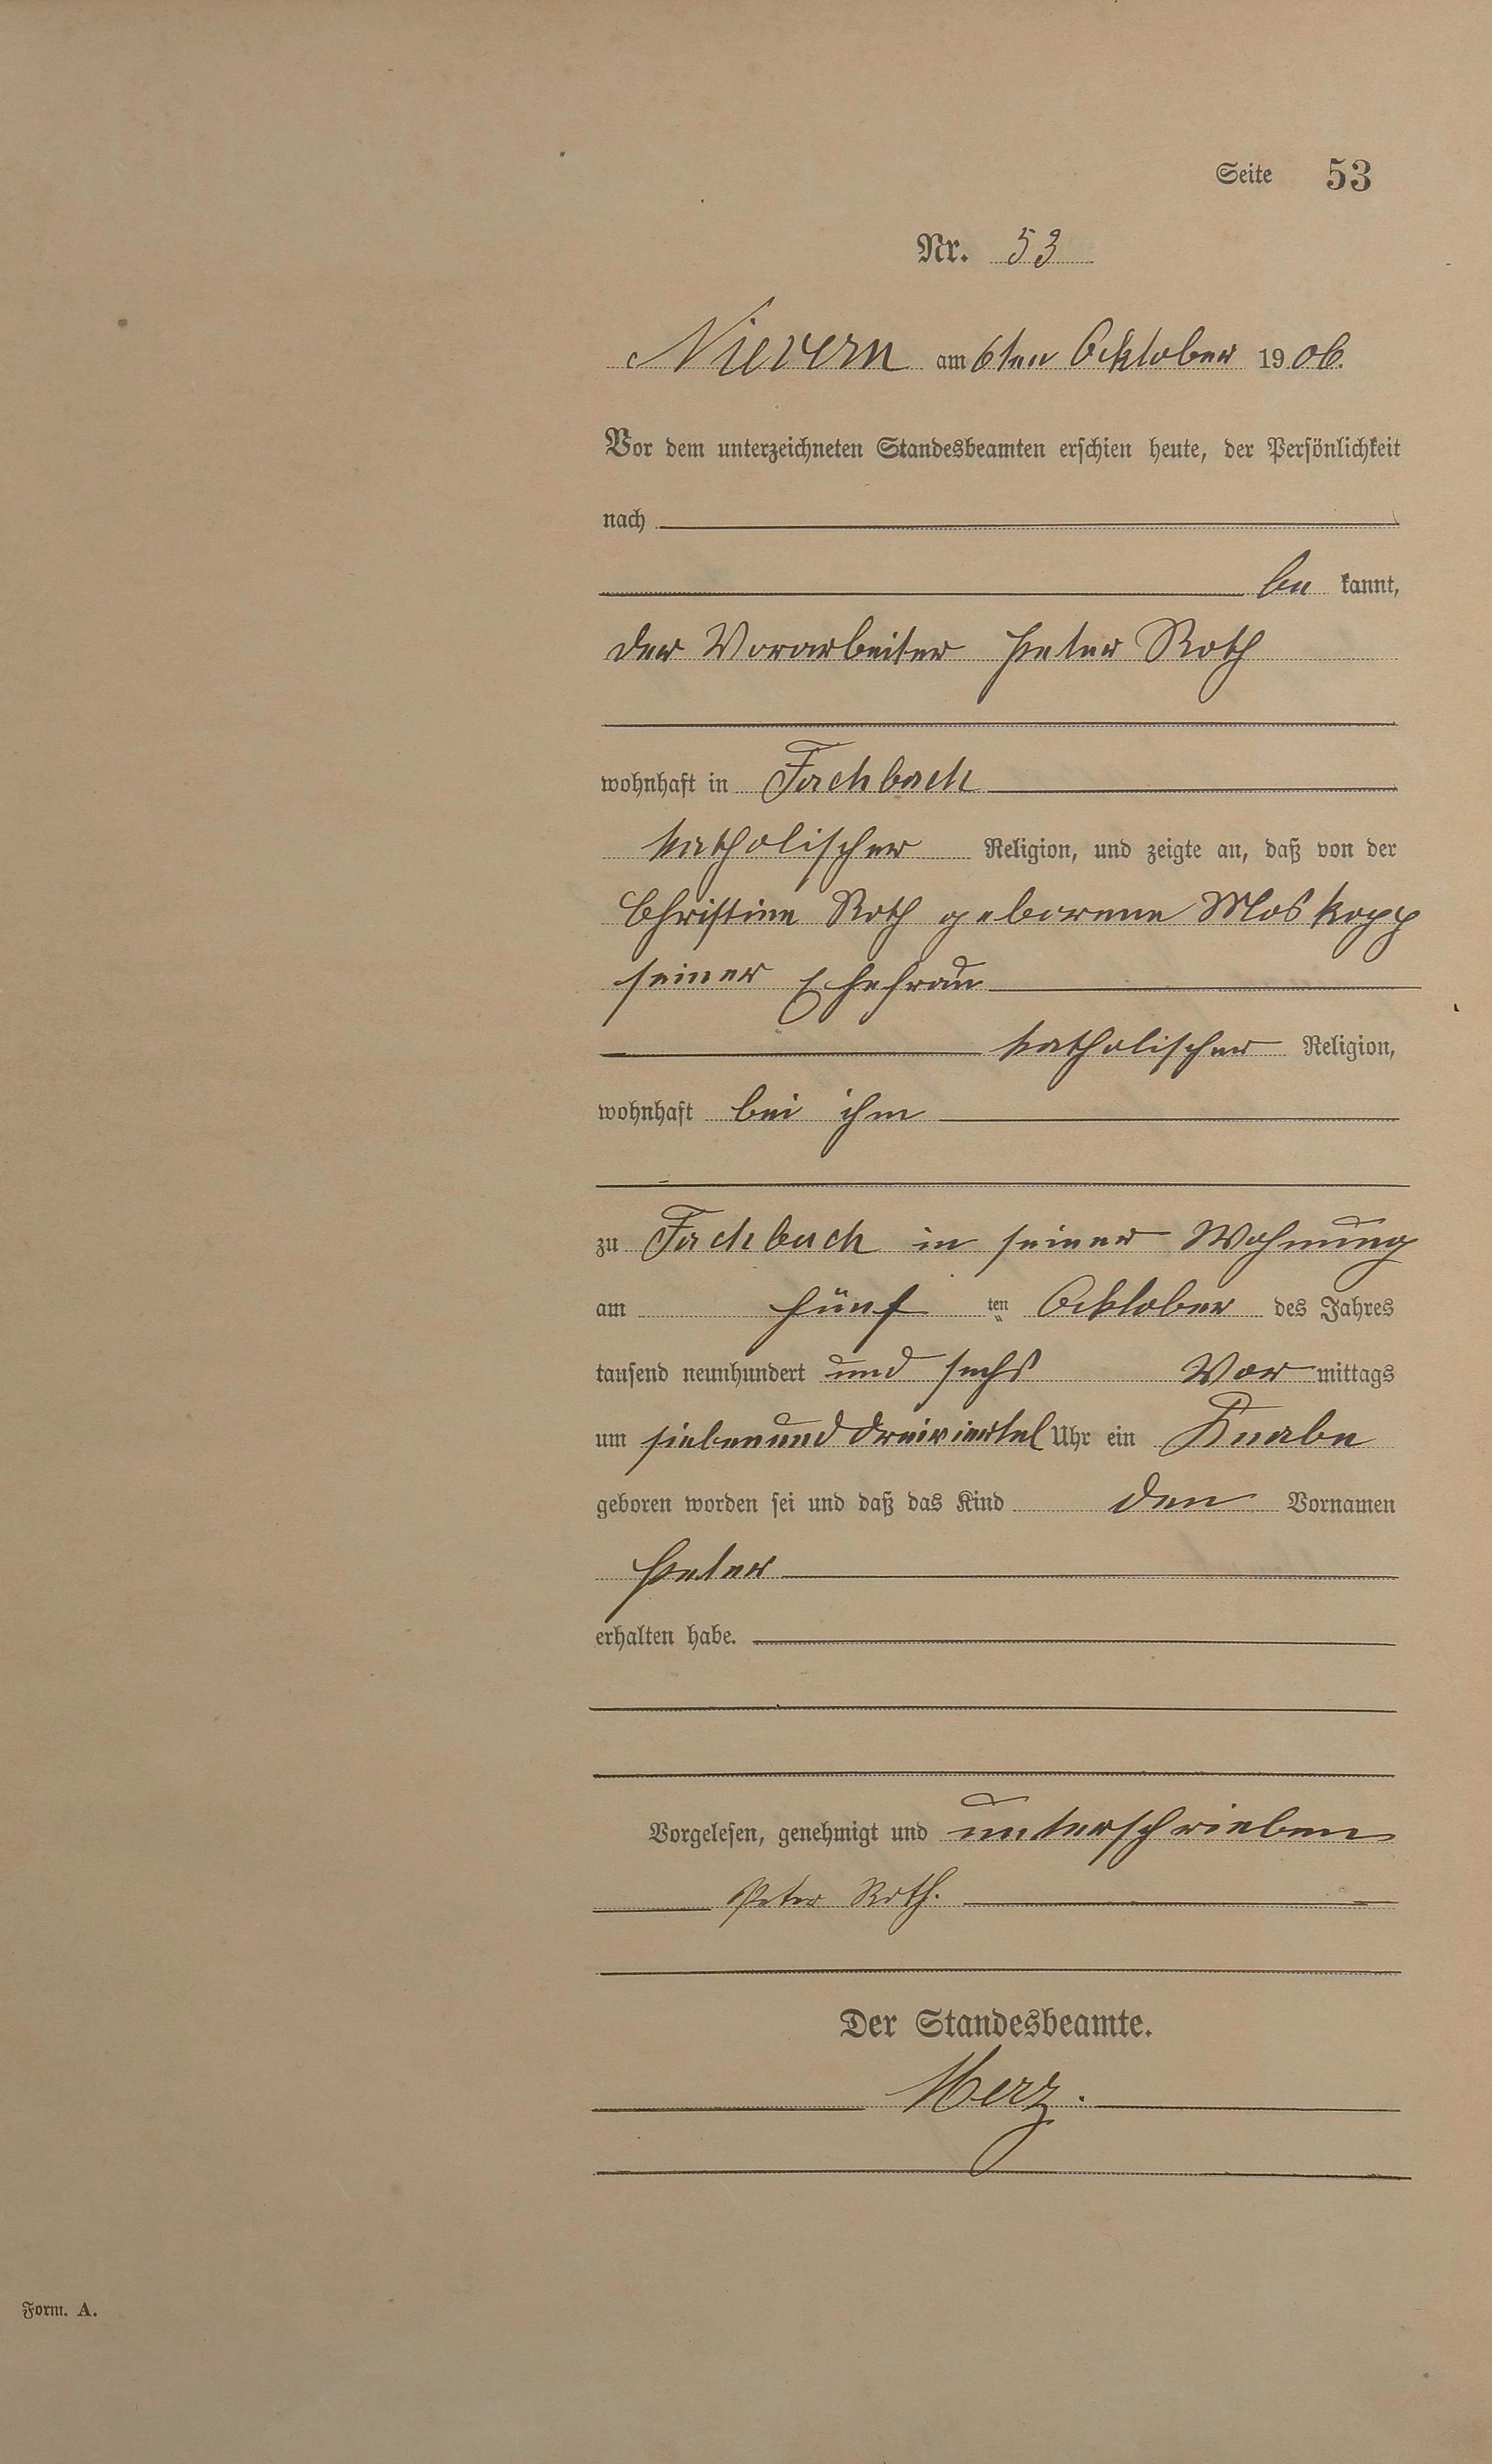 Seite 53
Nr. 53
Nievern am 6ten Ocktober 1906.
Vor dem unterzeichneten Standesbeamten erschien heute, der Persönlichkeit
nach
be kannt,
der Vorarbeiter Peter Roth
wohnhaft in Fachbach
katholischer Religion, und zeigte an, daß von der
Christine Roth geborene Moskopp
seiner Ehefrau
katholischer Religion,
wohnhaft bei ihm
zu Fachbach in seiner Wohnung
am fünf ten Ocktober des Jahres
tausend neunhundert und sechs Vor mittags
um sieben und dreiviertel Uhr ein Knabe
geboren worden sei und daß das Kind den Vornamen
Peter
erhalten habe.
Vorgelesen, genehmigt und unterschrieben
Peter Roth.
Der Standesbeamte.
Merz.
Form. A.